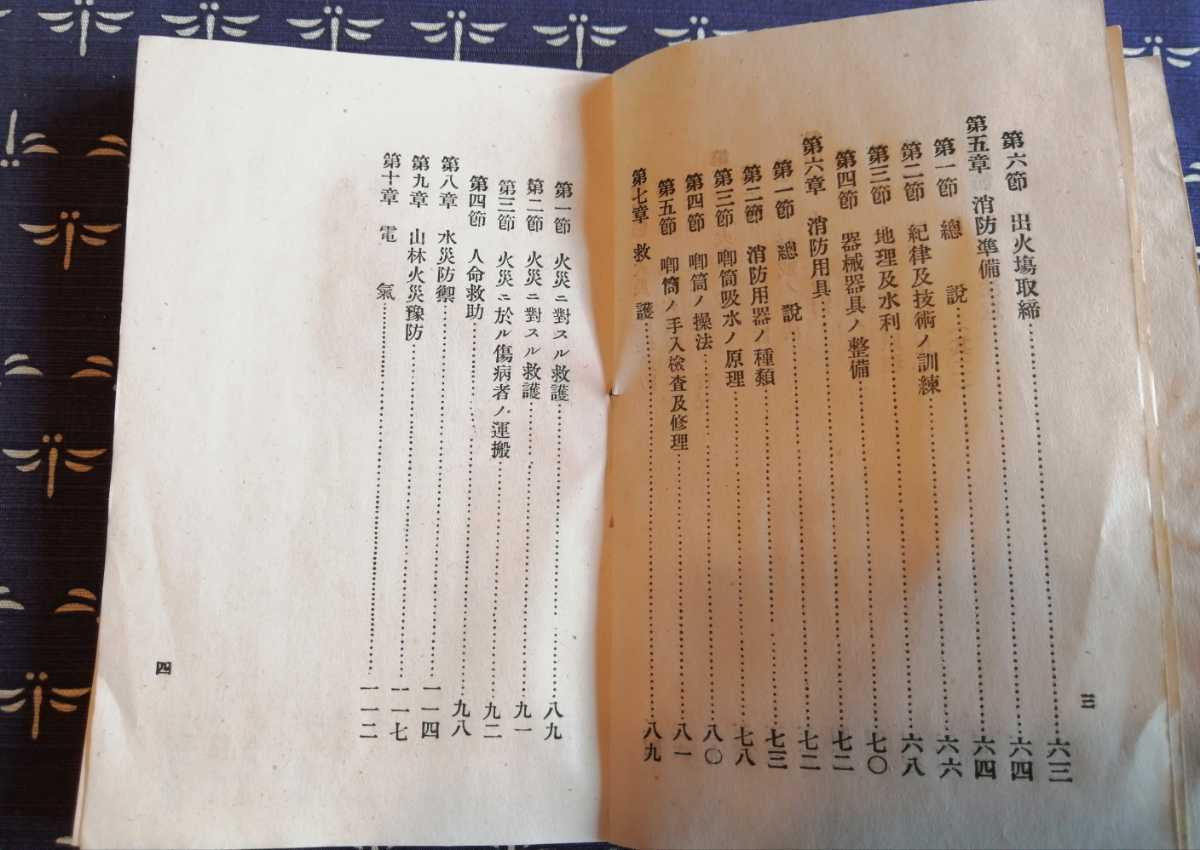 第六節 出火塲取締……六三
第五章 消防準備……六四
第一節 總說……六四
第二節 紀律及技術ノ訓練……六六
第三節 地理及水利……六八
第四節 器械器具ノ整備……七〇
第六章 消防用具……七二
第一節 總說……七二
第二節 消防用器ノ種類……七三
第三節 喞筒吸水ノ原理……七八
第四節 喞筒ノ操法……八〇
第五節 喞筒ノ手入檢査及修理……八一
第七章 救護……八九
三
第一節 火災ニ對スル救護……八九
第二節 火災ニ對スル救護……九一
第三節 火災ニ於ル傷病者ノ運搬……九二
第四節 人命救助……九八
第八章 水災防禦……一一四
第九章 山林火災豫防……一一七
第十章 電氣……一一二
四